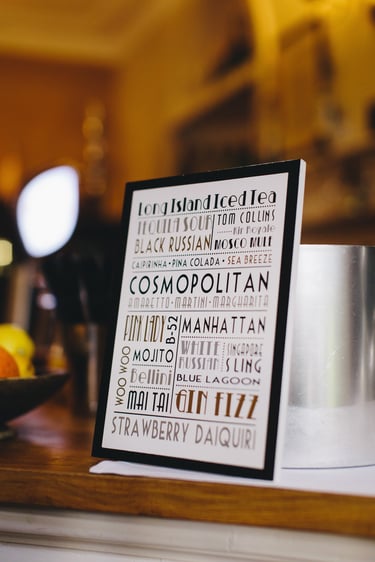 Long Island Iced Tea
TEQUILA SOUR TOM COLLINS
Kir Royale
BLACK RUSSIAN MOSCO MULE
CAIPIRINHA • PINA COLADA • SEA BREEZE
COSMOPOLITAN
AMARETTO • MARTINI • MARGHARITA
PINK LADY B-52 MANHATTAN
WOO WOO MOJITO WHITE RUSSIAN SINGAPORE SLING
Bellini BLUE LAGOON
MAI TAI GIN FIZZ
STRAWBERRY DAIQUIRI